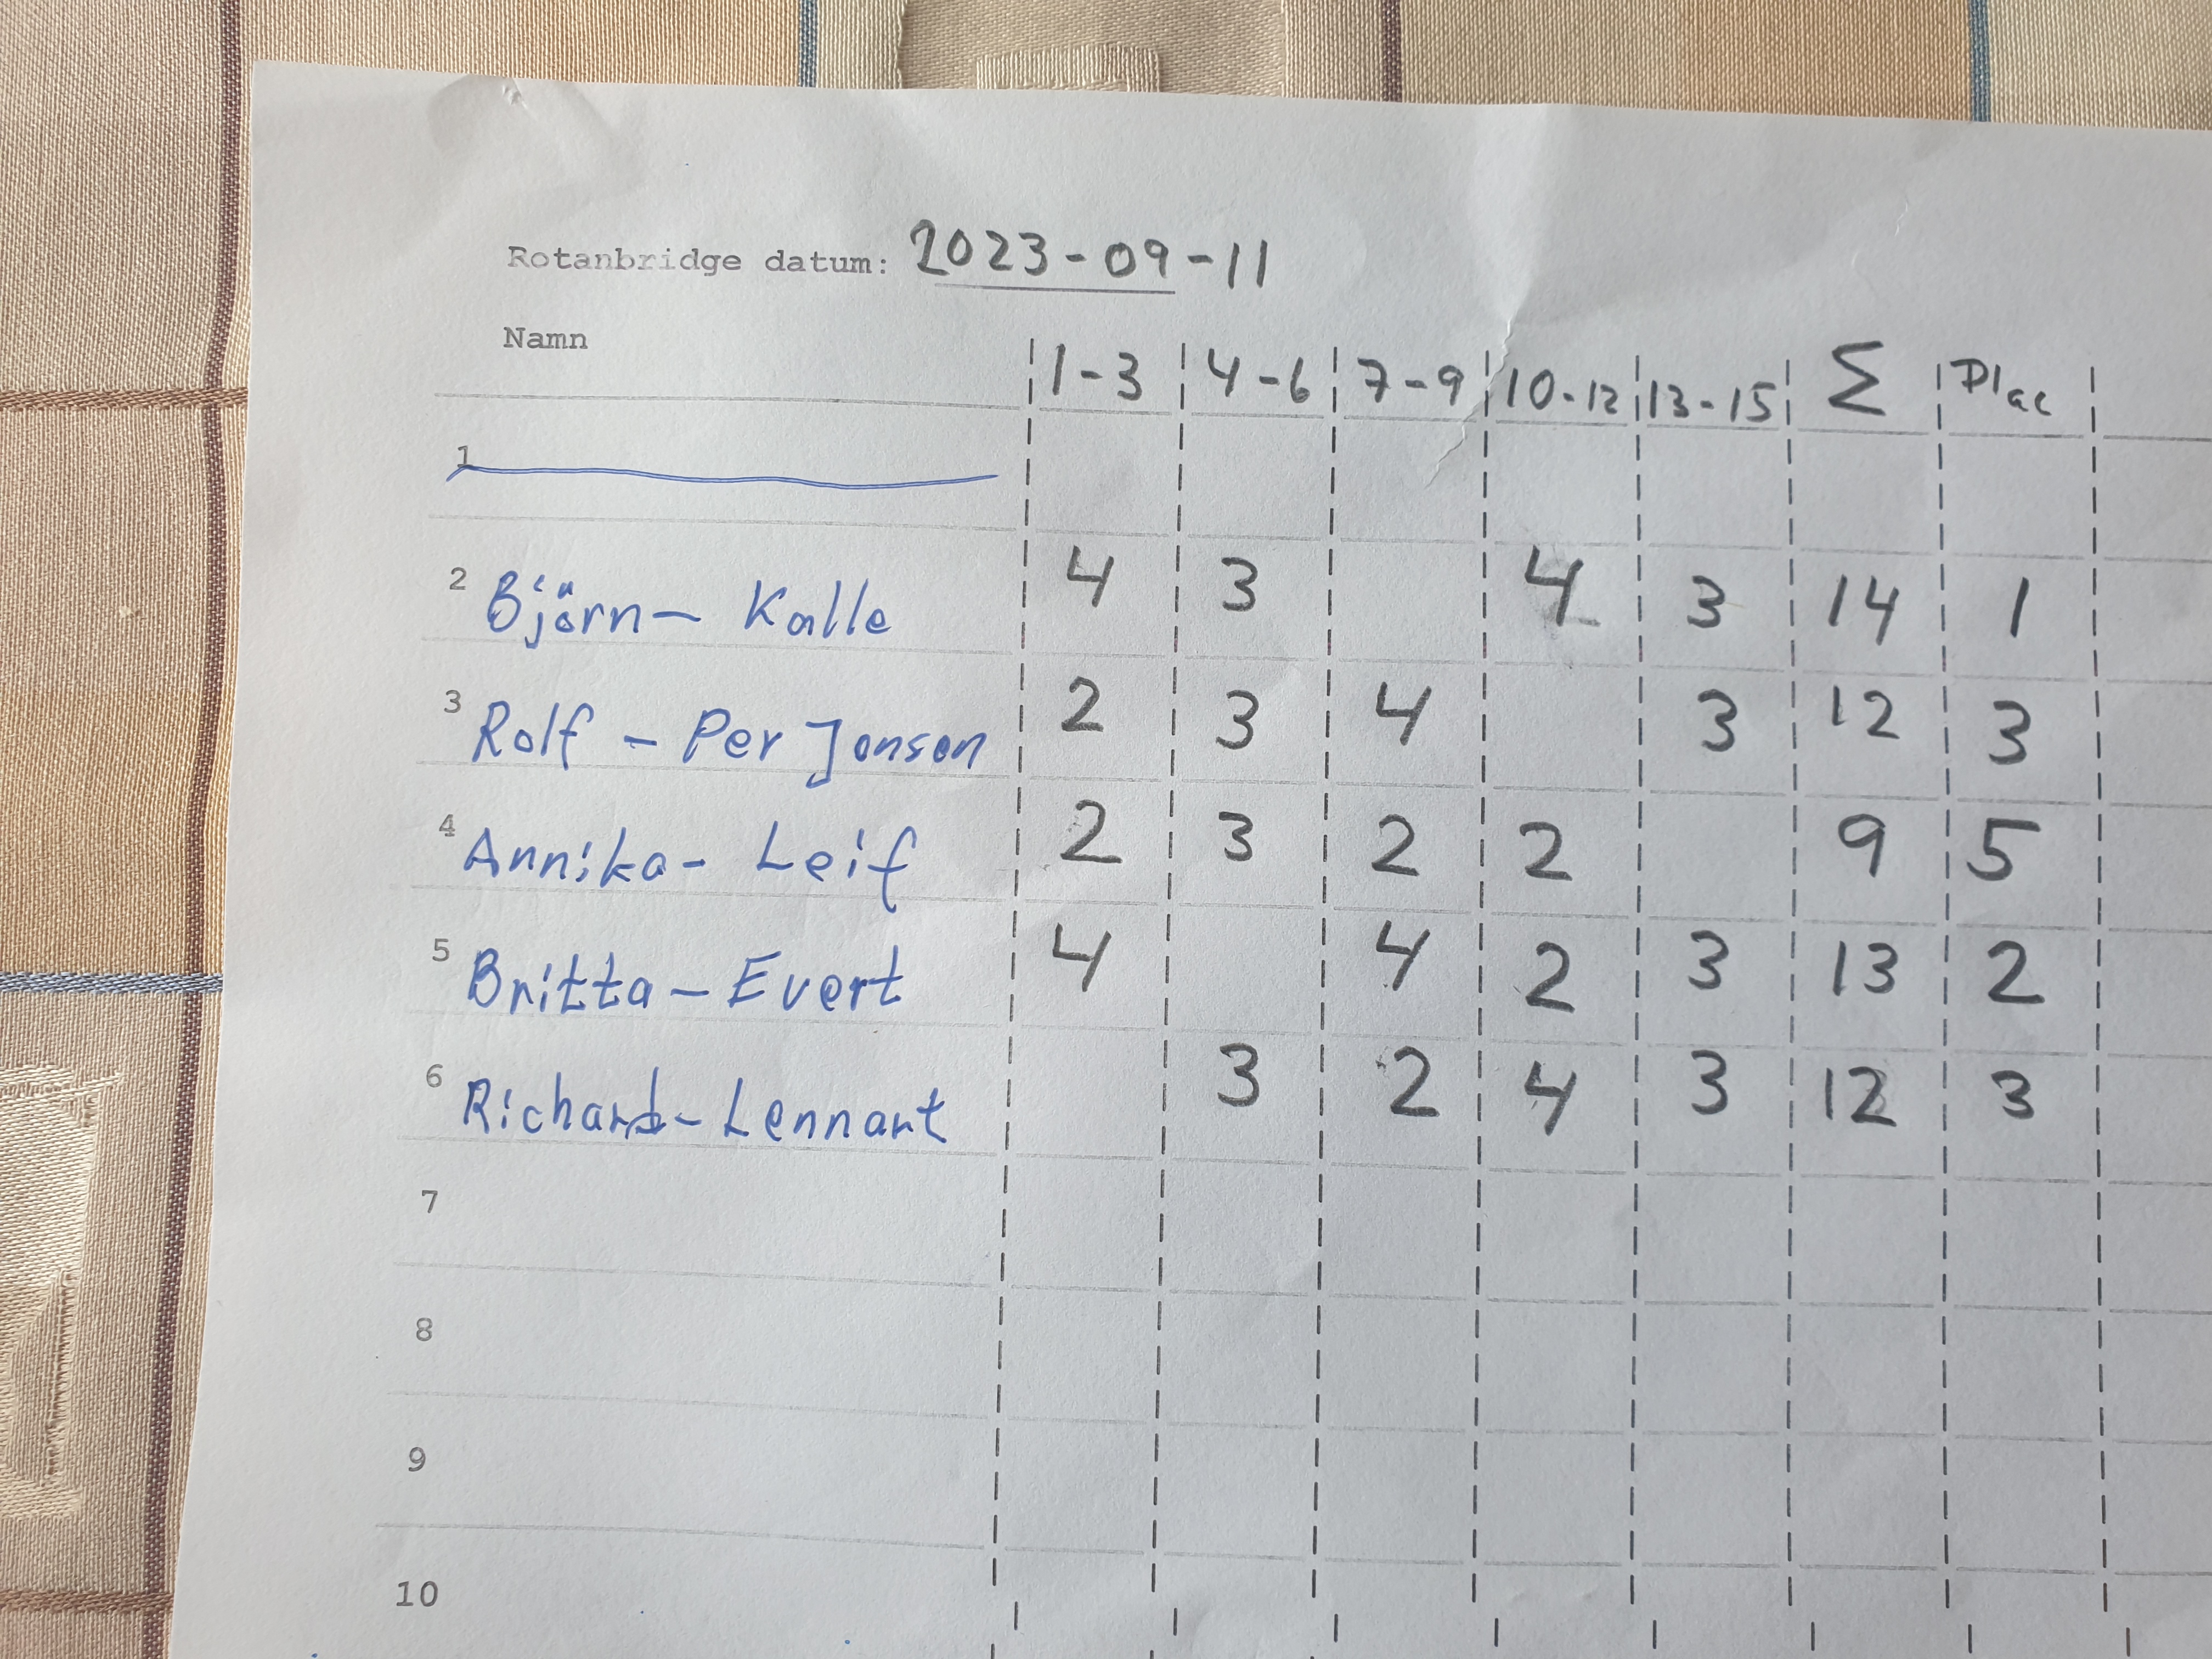 Rotanbridge datum: 2023-09-11
Namn 1-3 4-6 7-9 10-12 13-15 Σ Plac
1
2 Björn - Kalle 4 3 4 3 14 1
3 Rolf - Per Jonson 2 3 4 3 12 3
4 Annika - Leif 2 3 2 2 9 5
5 Britta - Evert 4 4 2 3 13 2
6 Richard - Lennart 3 2 4 3 12 3
7
8
9
10